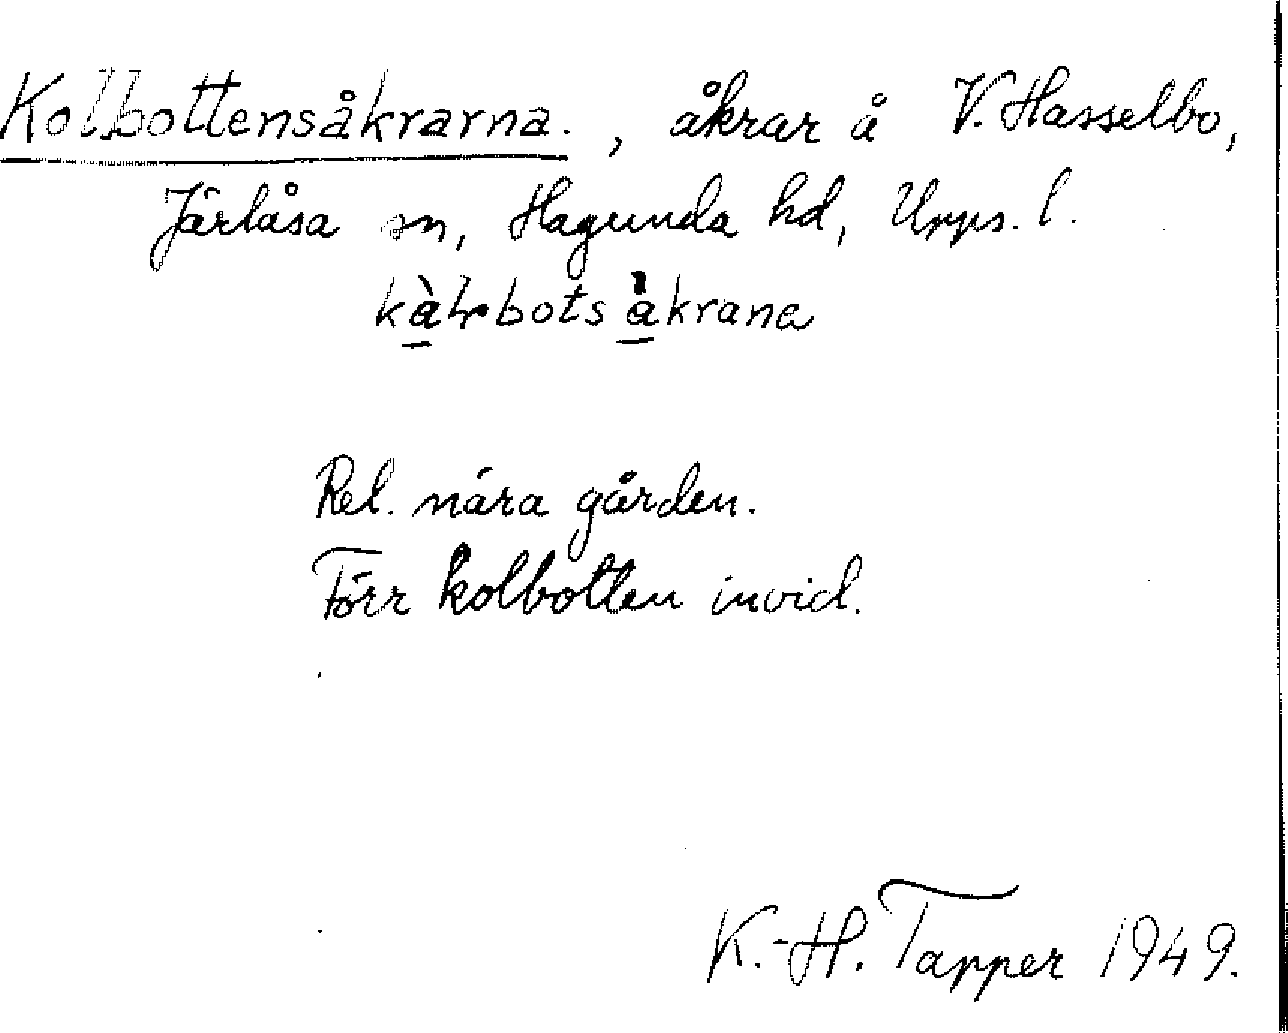 Kolbottensåkrarna., åkrar å V. Hasselbo,
Järlåsa sn, Hagunda hd, Upps. l.
Rel. nära gården.
Förr kolbotten invid.
K.-H. Tapper 1949.